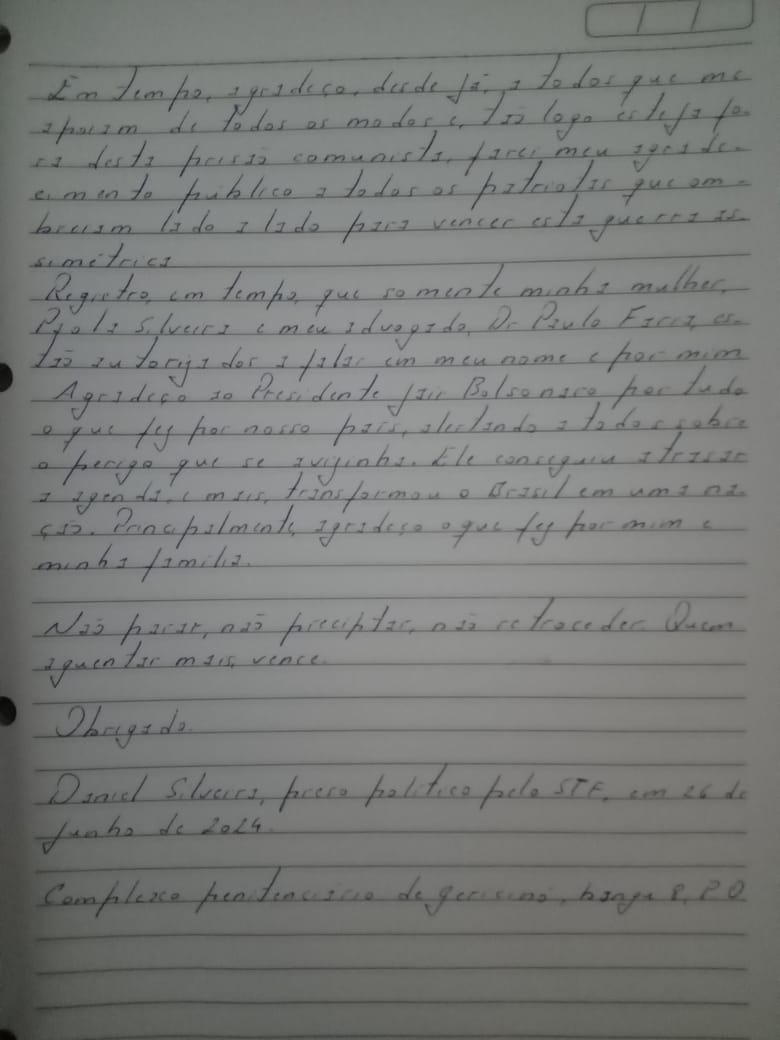 Em tempo, agradeço, desde já, a todos que me
apoiam de todos os modos e, tão logo esteja fo-
ra desta prisão comunista, farei meu agrade-
cimento público a todos os patriotas que om-
breiam lado a lado para vencer esta guerra as-
simétrica
Registro, em tempo, que somente minha mulher,
Paola Silveira e meu advogado, Dr Paulo Faria, es-
tão autorizados a falar em meu nome e por mim
Agradeço ao Presidente Jair Bolsonaro por tudo
o que fez por nosso país, alertando a todos sobre
o perigo que se avizinha. Ele conseguiu atrasar
a agenda, e mais, transformou o Brasil em uma na-
ção. Principalmente, agradeço o que fez por mim e
minha família.
Não parar, não preciptar, não retroceder. Quem
aguentar mais, vence.
Obrigado.
Daniel Silveira, preso político pelo STF, em 26 de
Junho de 2024.
Complexo penitenciário de gericinó, bangu 8, PO